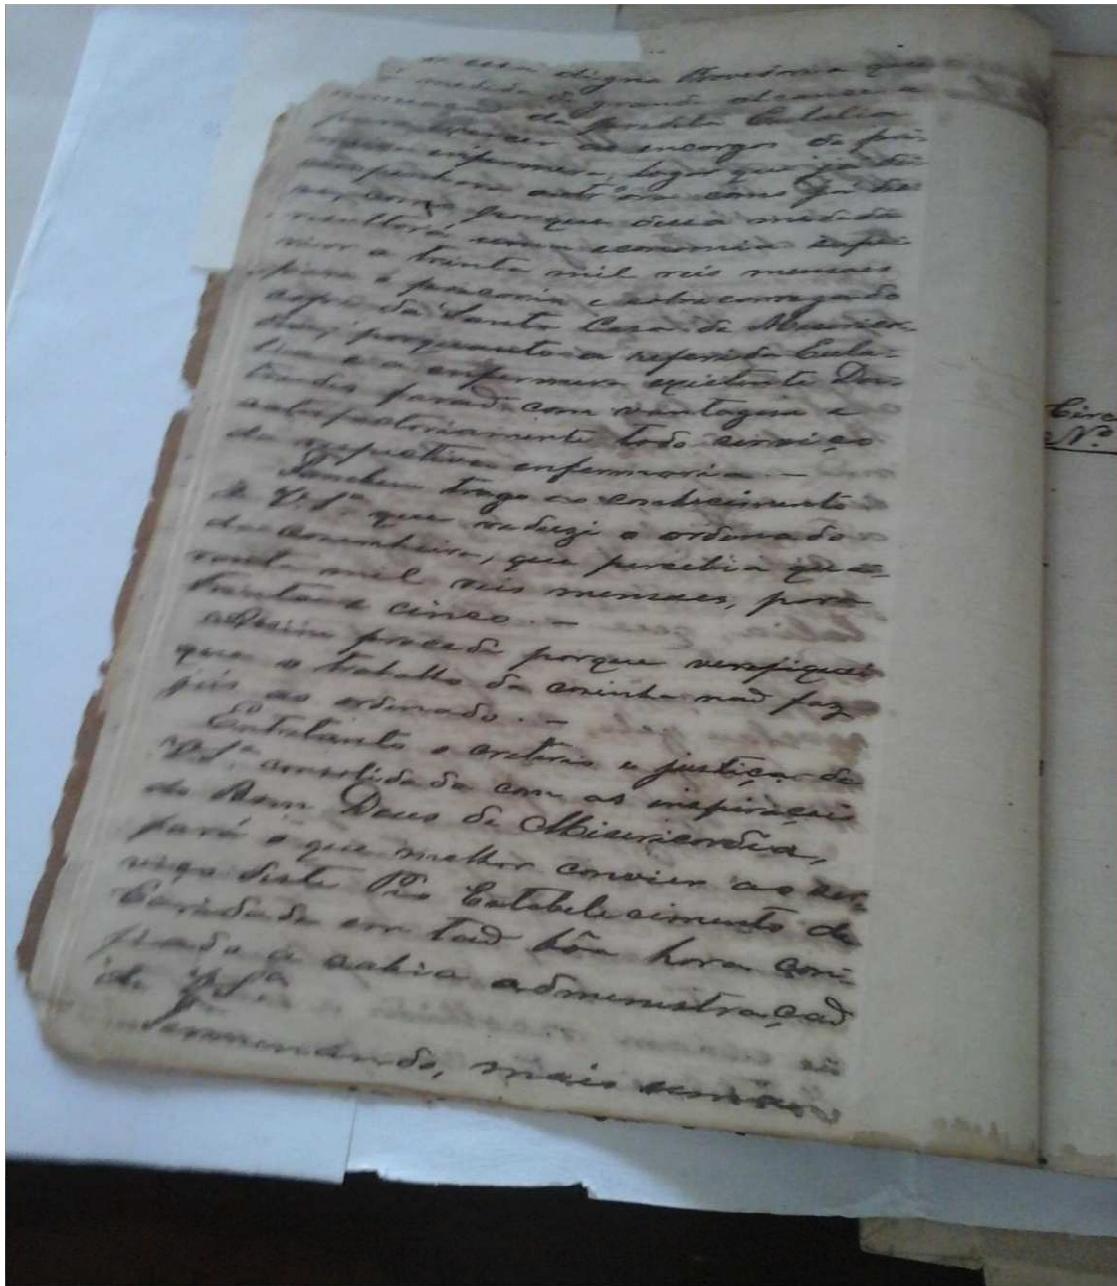 a essa digna Provedoria que
medida de grande alcance a
nomeação da parda Eulalia
para exercer os encargos de
enfermeira, logo que ja
outr'ora como ja
porque dessa medida
resultará uma economia supe-
rior a trinta mil reis mensaes
para o e sobrecarregado
cofre da Santa Casa de Misericor-
dia, porquanto a referida Eula-
lia e a enfermeira existente
farão com vantagem e
satisfactoriamente todo serviço
da respectiva enfermaria. —
Tambem trago ao conhecimento
de V. S.ª que reduzi o ordenado
da cosinheira, que percebia qua-
renta mil reis mensaes, para
trinta e cinco. —
Assim procedi porque verifiquei
que o trabalho da cosinha não faz
jús ao ordenado. —
Entretanto o criterio e justiça de
V. S.ª consolidada com as inspirações
do Bom Deus de Misericordia,
fará o que melhor convier ao ser-
viço deste Pio Estabelecimento de
Caridade em tão bôa hora con-
fiado a sabia administração
de V. S.ª
Terminando, mais
Circ
N.º